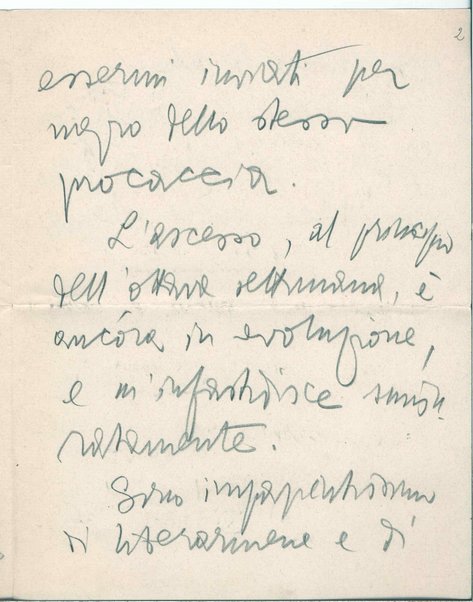 2
essermi inviati per
mezzo dello stesso
procaccia.
L'ascesso, al principio
dell'ottava settimana, è
ancóra in evoluzione,
e m'infastidisce smisu-
ratamente.
Sono impazientissimo
di liberarmene e di